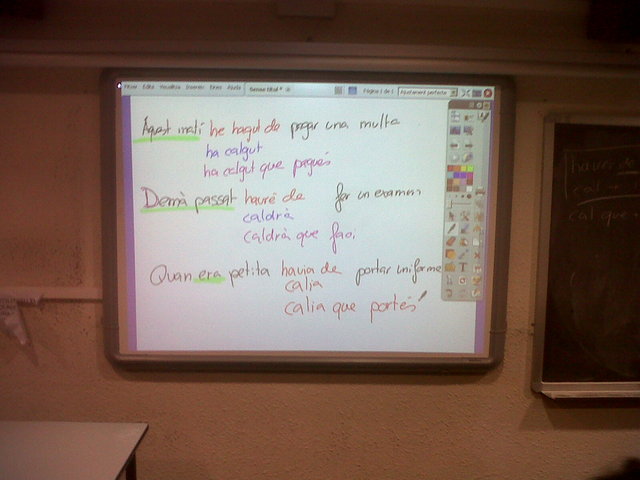 Fitxer Edita Visualitza Insereix Eines Ajuda
Sense títol *
Pàgina 1 de 1
Ajustament perfecte
Aquest matí he hagut de pagar una multa
ha calgut
ha calgut que pagués
Demà passat hauré de fer un examen
caldrà
caldrà que faci
Quan era petita havia de portar uniforme
calia
calia que portés
haver de
cal
cal que